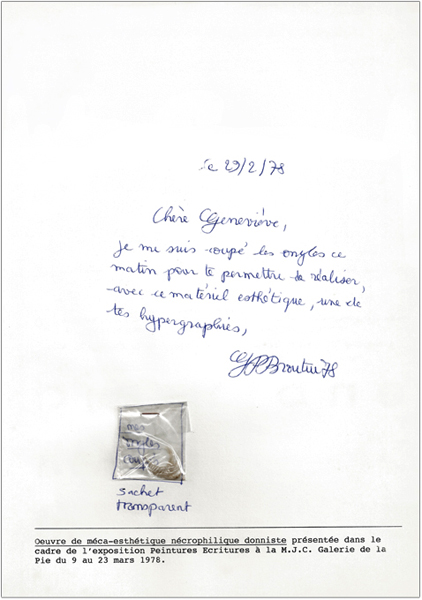 le 29/2/78
Chère Geneviève,
je me suis coupé les ongles ce
matin pour te permettre de réaliser,
avec ce matériel esthétique, une de
tes hypergraphies,
GPBroutin 78
mes
ongles
coupés
sachet
transparent
Oeuvre de méca-esthétique nécrophilique donniste présentée dans le
cadre de l'exposition Peintures Ecritures à la M.J.C. Galerie de la
Pie du 9 au 23 mars 1978.